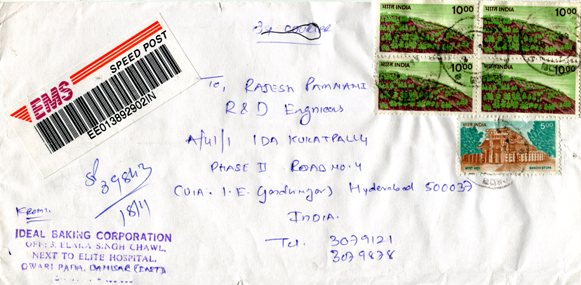 EMS SPEED POST
EE013892902IN
भारत INDIA 1000
भारत INDIA 1000
भारत INDIA 1000
भारत INDIA 1000
भारत INDIA 5.00
SANCHI STUPA
To,
RAJESH
R & D Engineers
A/41/1 IDA KUKATPALLY
PHASE II ROAD NO. 4
(VIA. I.E. Gandhinagar) Hyderabad 500037
INDIA.
Tel. 3079121
3079878
39843
18/11
FROM:
IDEAL BAKING CORPORATION
OFF: SINGH CHAWL,
NEXT TO ELITE HOSPITAL,
OWARI PADA, DAHISAR (EAST)